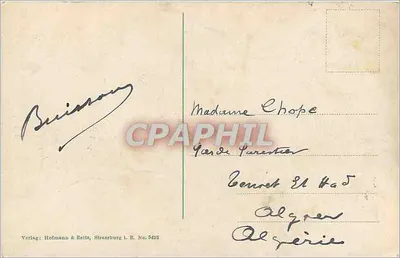 Buisson
Madame Chope
CPAPHIL
Garde Forestier
Teniet El Had
Alger
Algérie
Verlag: Hofmann & Reits, Strassburg i. E. No. 9422